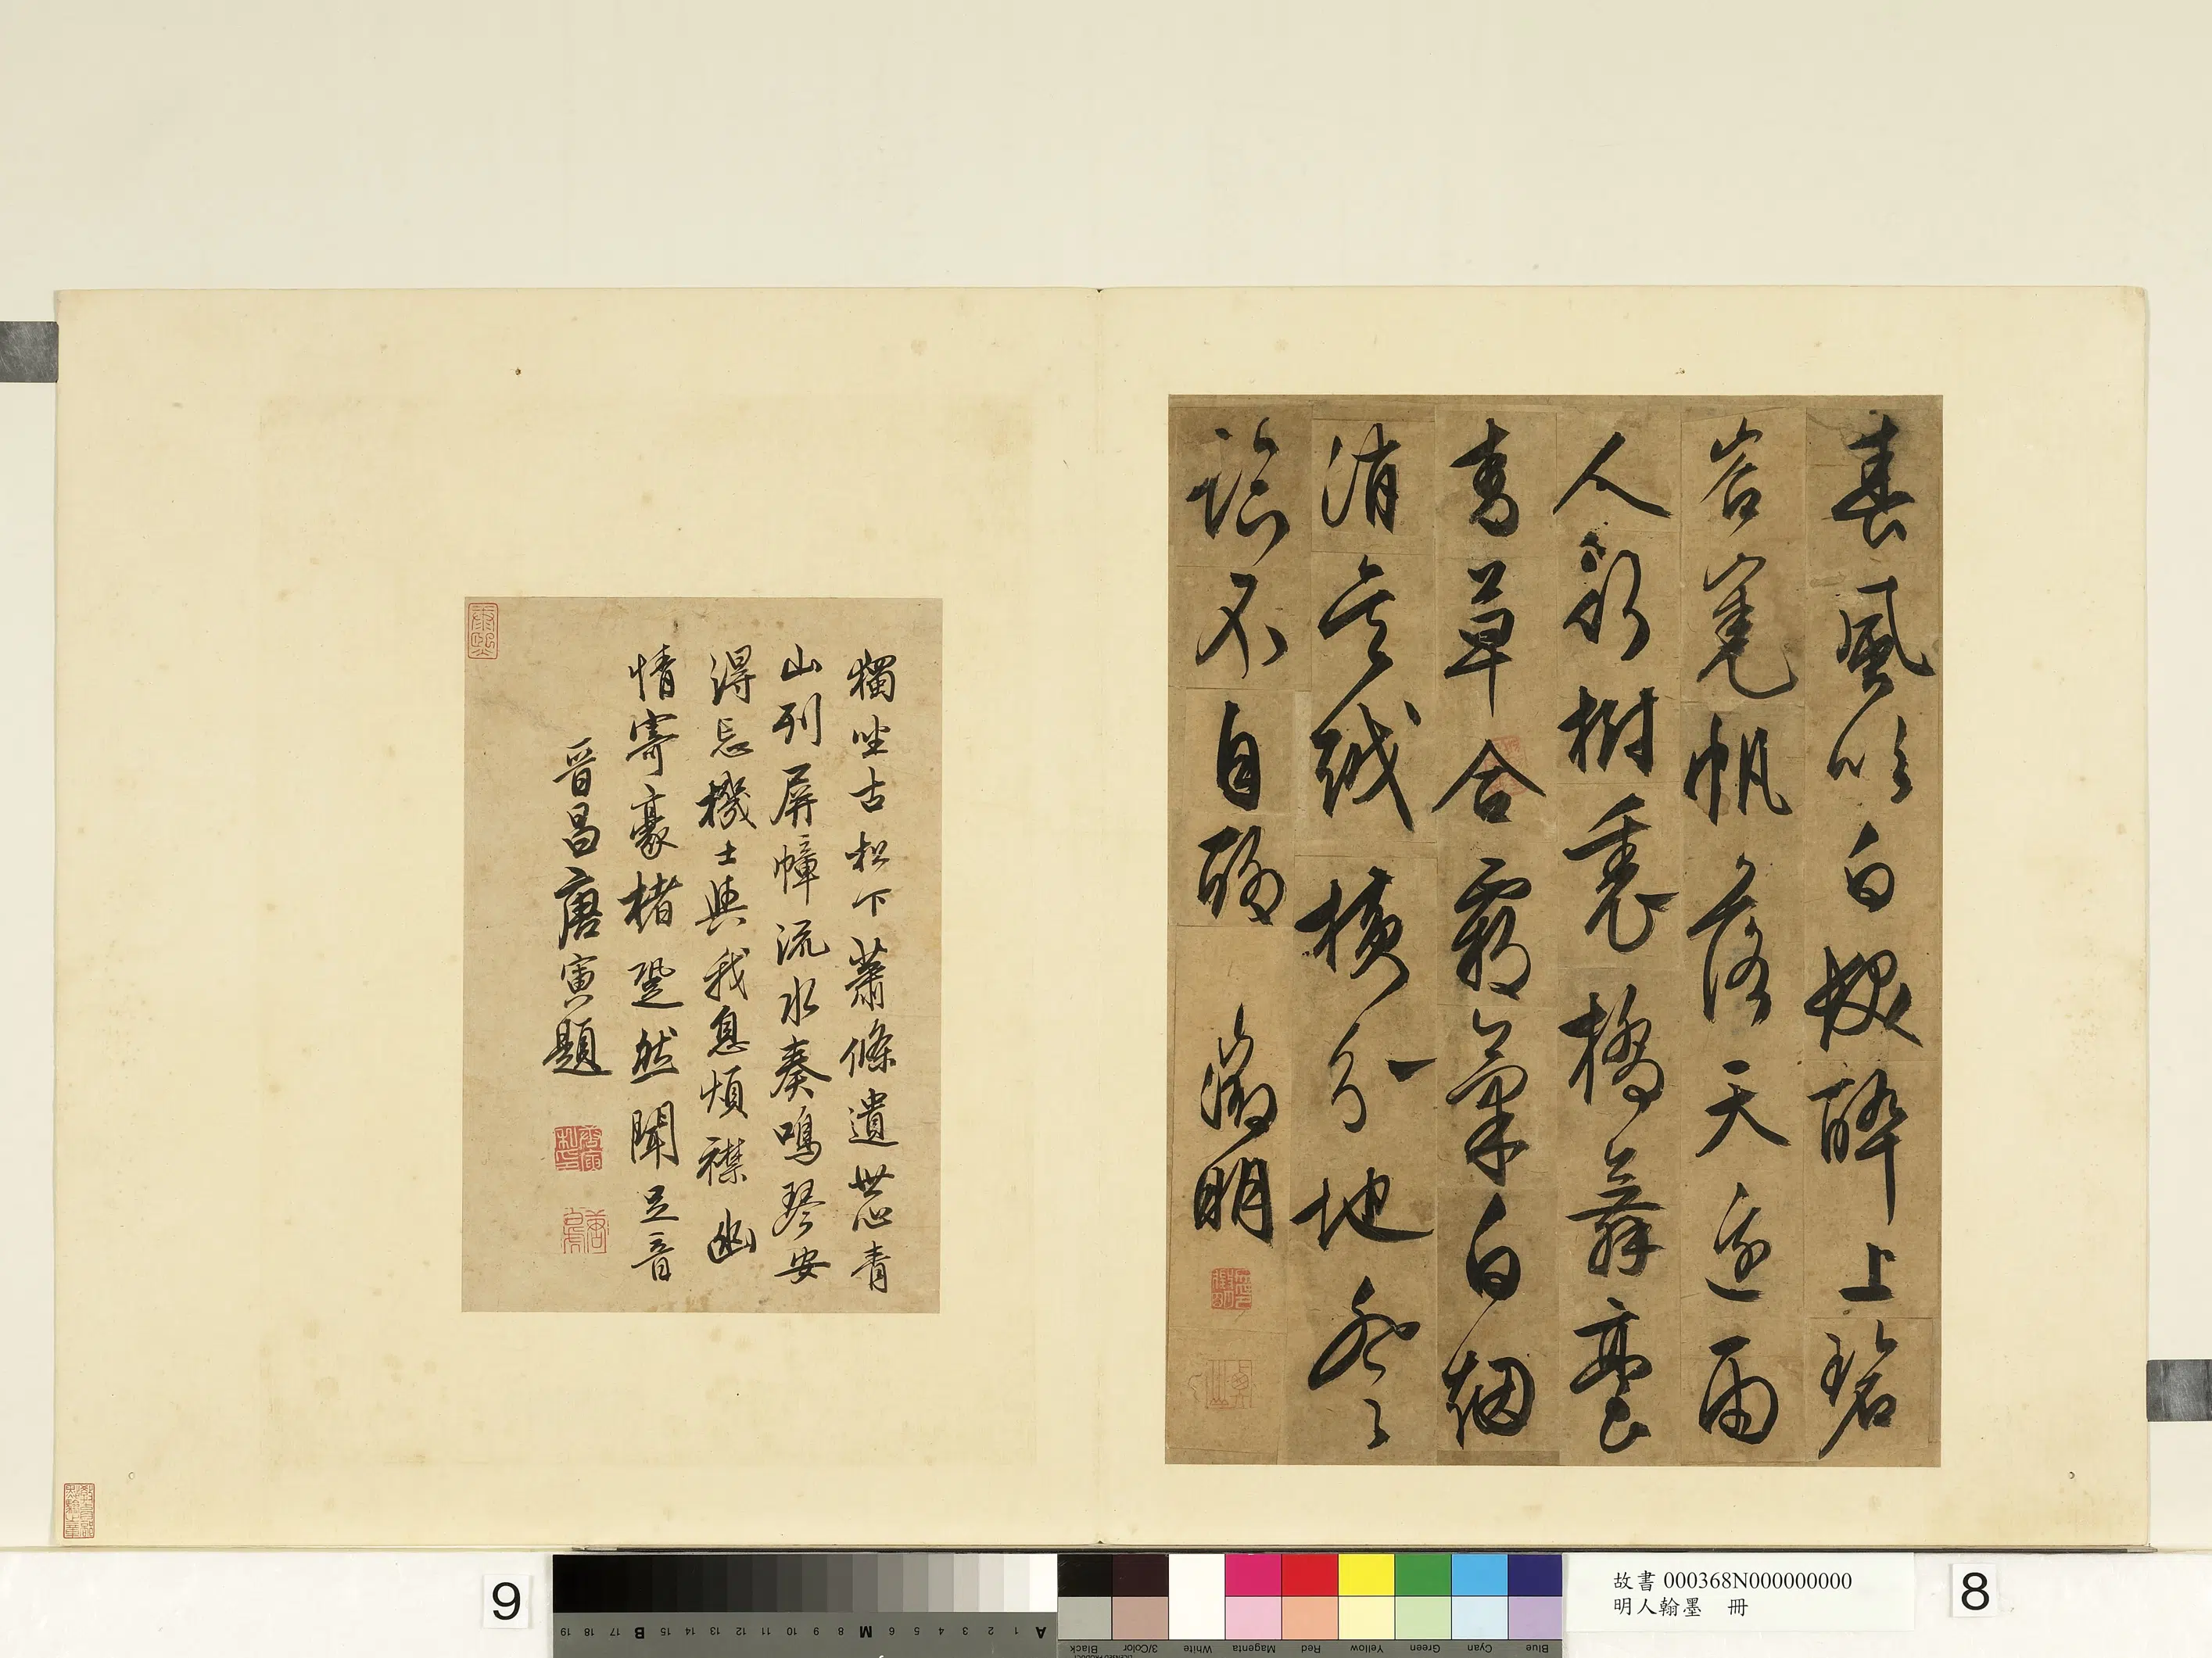 春風吹白髮醉上碧
岧嶤帆落天邊雨
人樹裏橋舞臺
青草合霸業白烟
消吳越橫分地登
臨不自聊
徵明
獨坐古松下蕭條遺世心青
山列屏幛流水奏鳴琴安
得忘機士與我息煩襟幽
情寄豪楮跫然聞足音
晉昌唐寅題
故書 000368N000000000
明人翰墨 冊
8
9
A 1 2 3 4 5 6 M 8 9 10 11 12 13 14 15 B 17 18 19
Blue Cyan Green Yellow Red Magenta White 3/Color Black